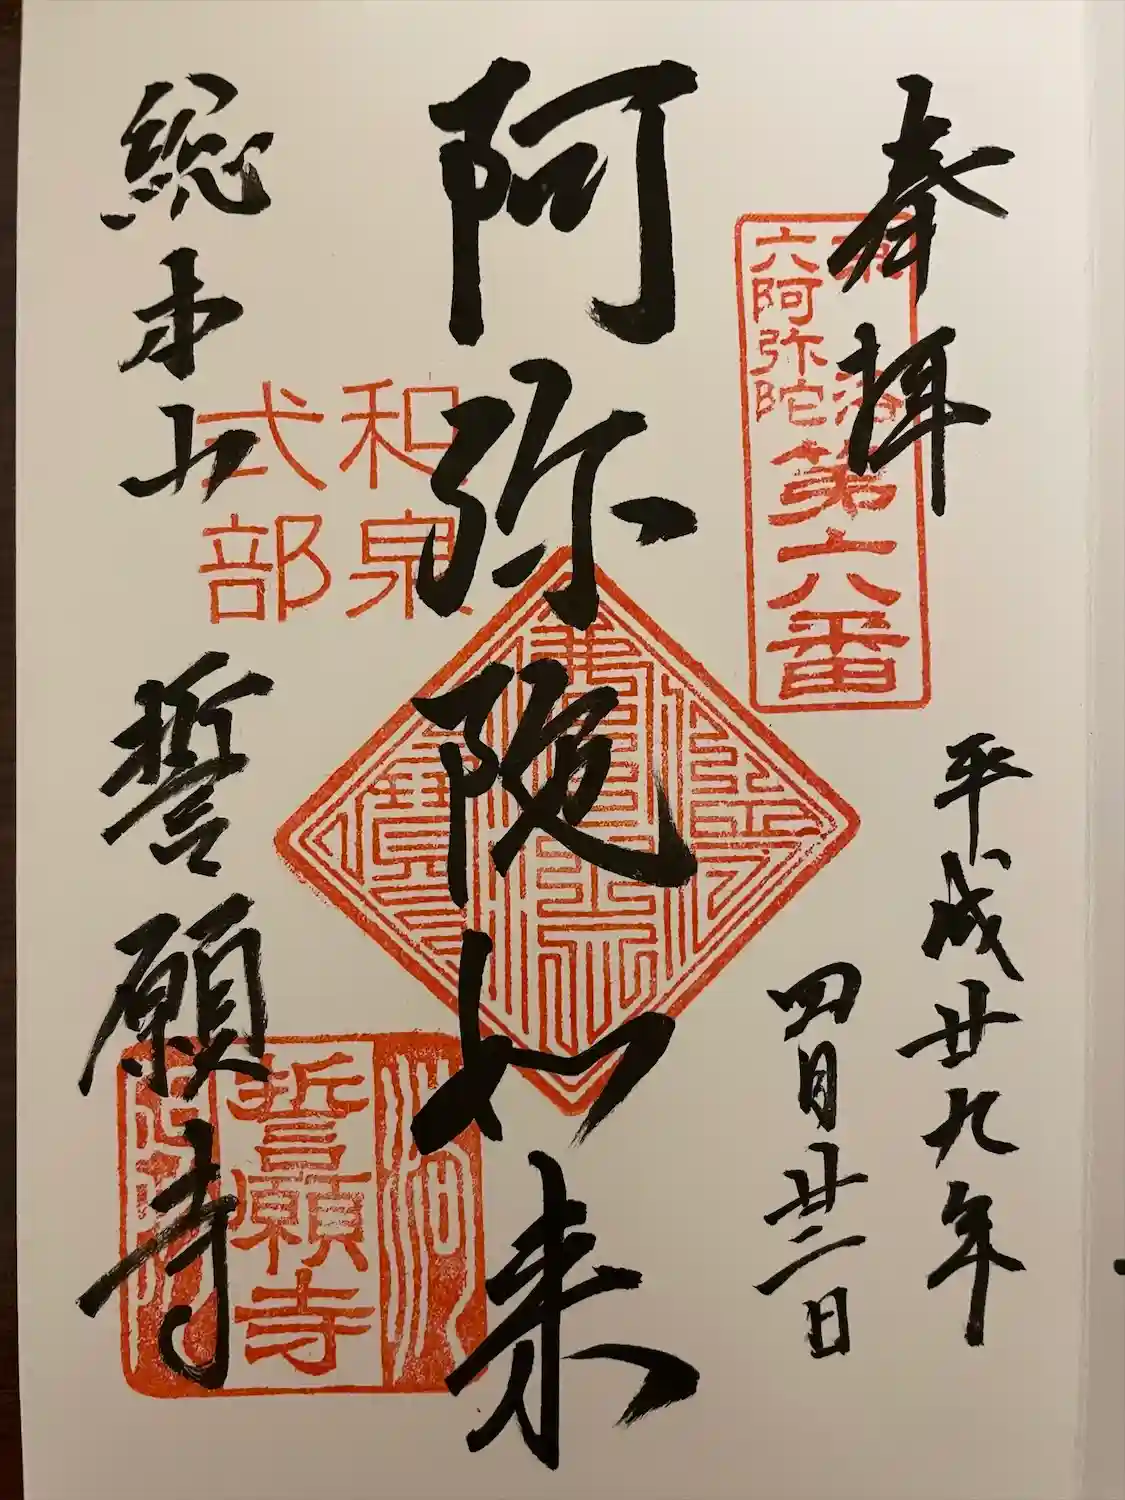 奉拝
平成廿九年
四月廿二日
京洛
六阿弥陀
第六番
阿弥陀如来
和泉
式部
総本山
誓願寺
誓願寺